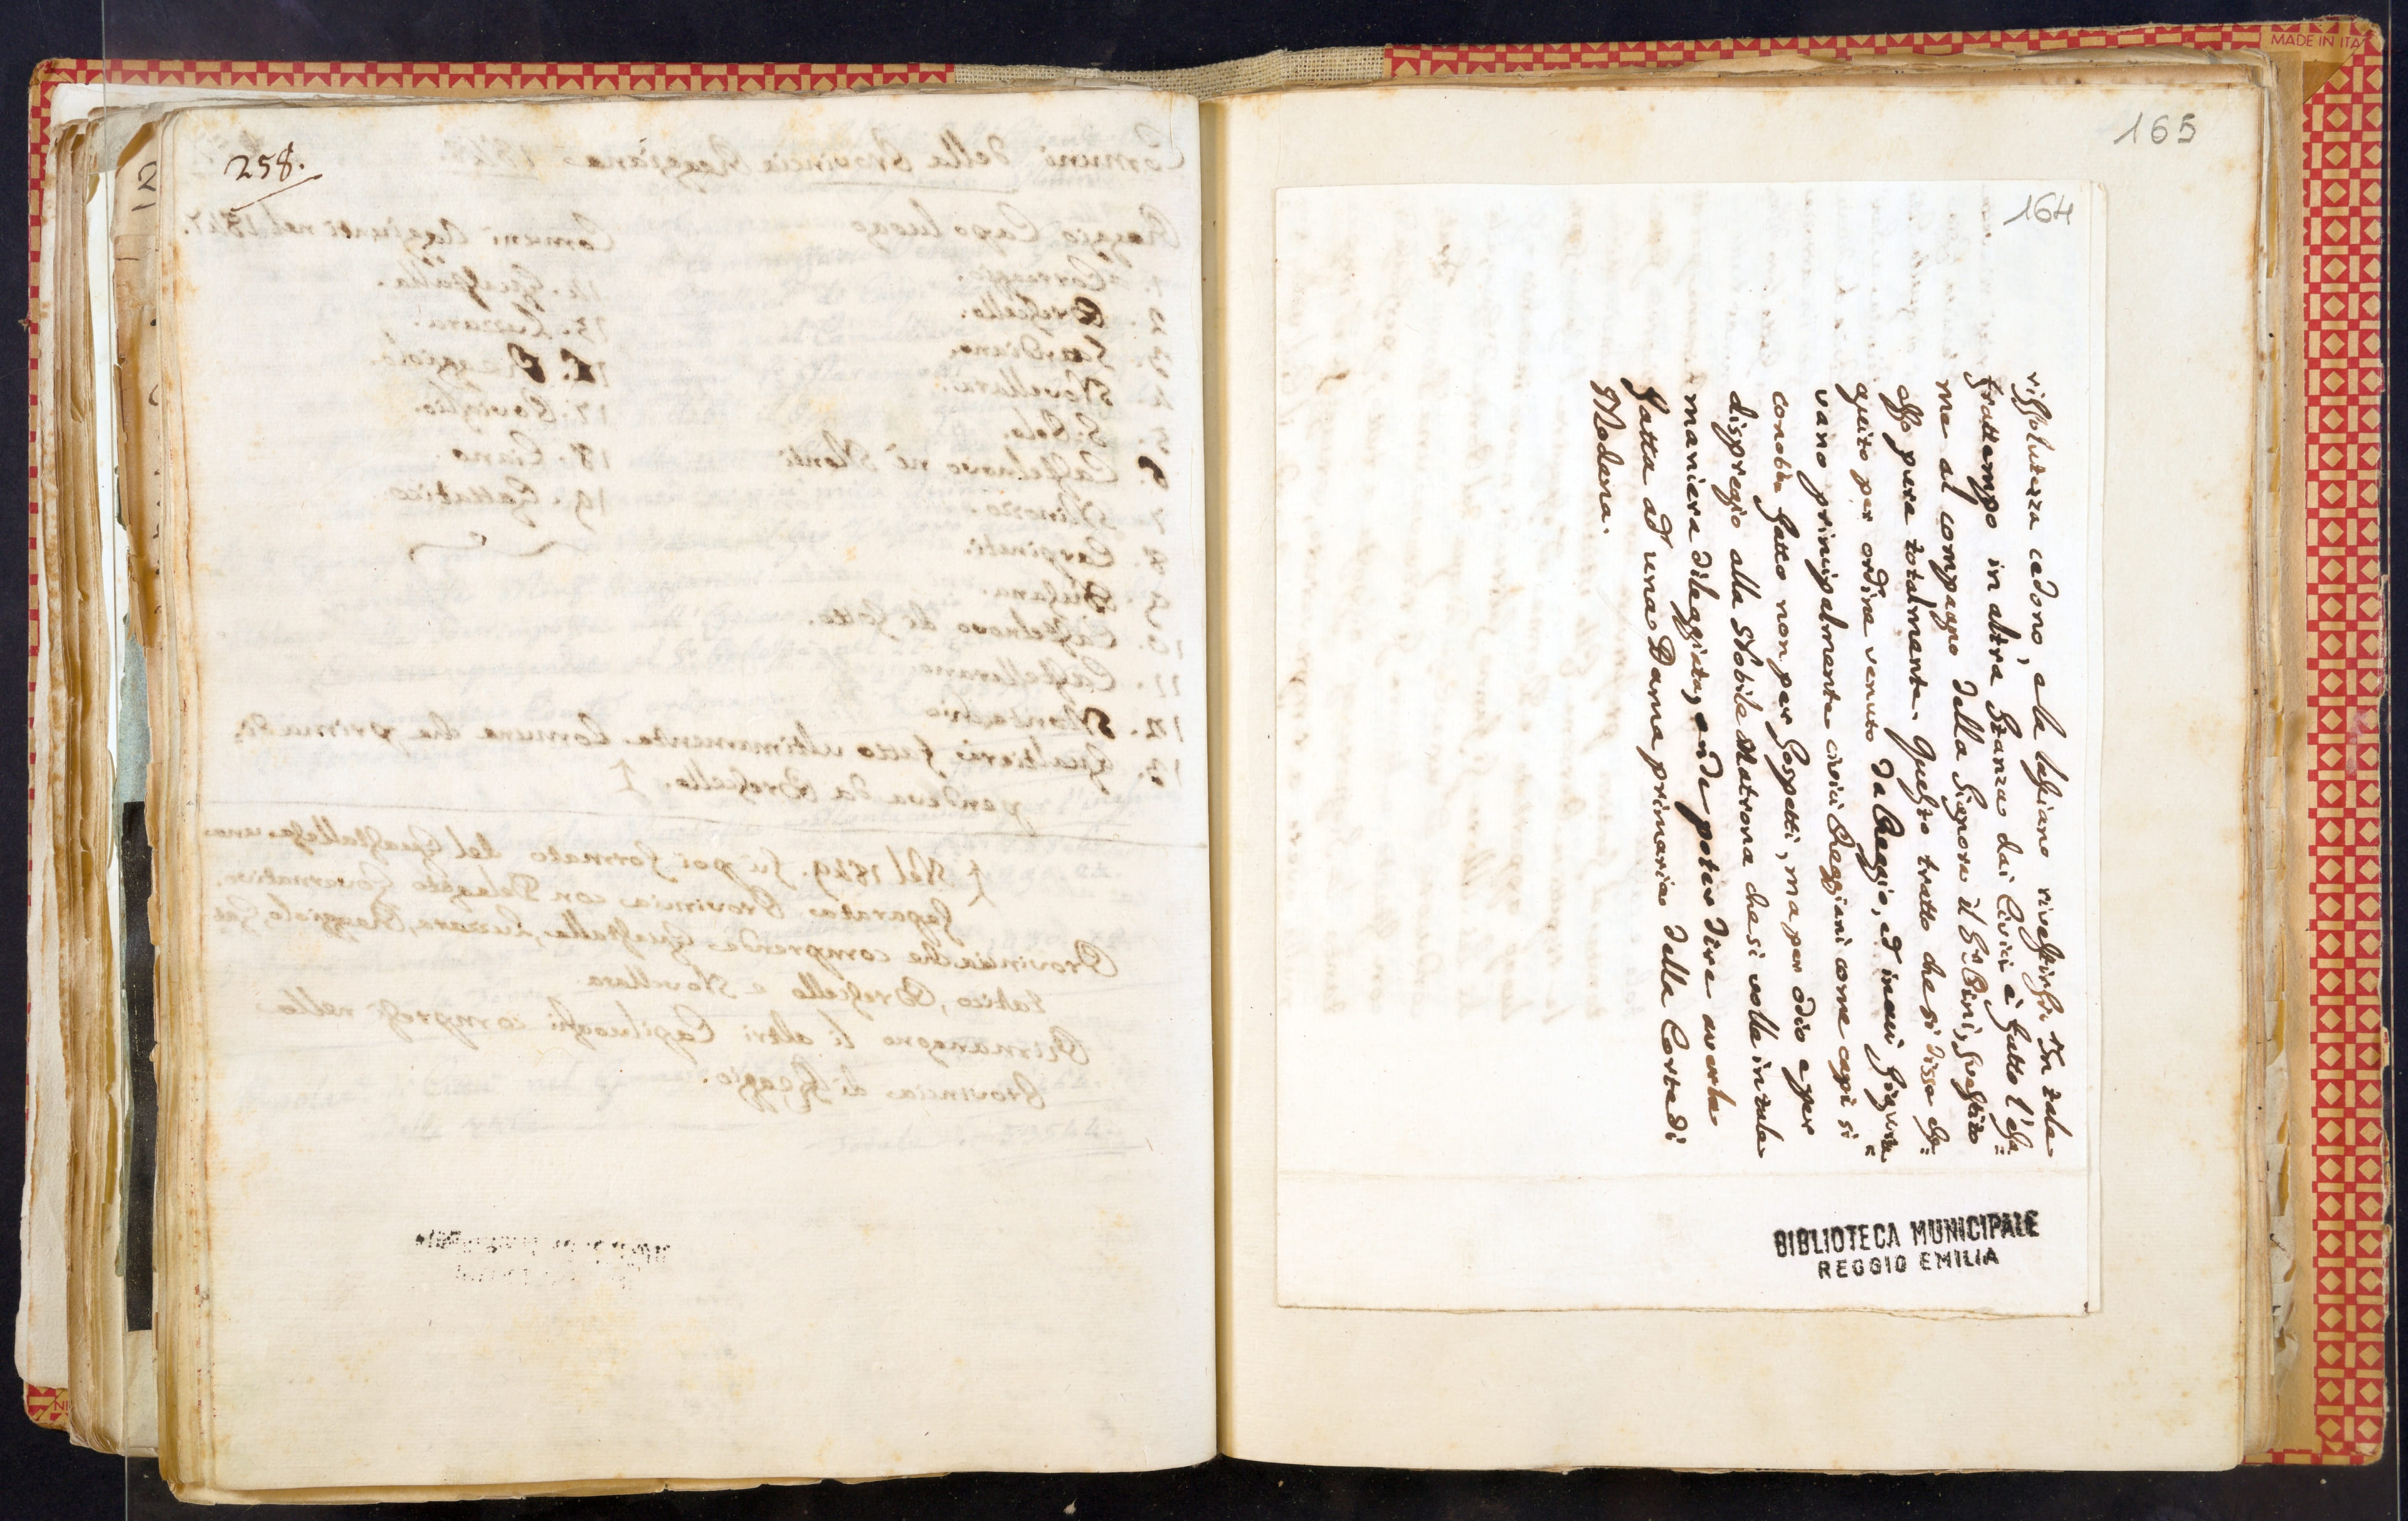 258.
Comuni della Provincia Reggiana 1847.
Reggio Capo luogo
1. Correggio.
2. Brescello.
3. Scandiano.
4. Novellara.
5. S. Polo.
6. Castelnovo nè Monti
7. Minozzo
8. Carpineti.
9. Busana.
10. Castelnovo di sotto.
11. Castellarano
12. Montechio
13. Gualtieri fatto ultimamente Comune che prima di-
pendeva da Brescello.
Comuni Aggiunti nel 1847.
14. Guastalla.
15. Luzzara.
16. Reggiolo.
17. Poviglio.
18. Ciano.
19. Gattatico.
Nel 1849. fu poi formato del Guastallese una
separata Provincia con Delegato Governativo.
Provincia che comprende Guastalla, Luzzara, Reggiolo, Gat-
tatico, Brescello e Novellara
Rimangono li altri Capiluoghi compresi nella
Provincia di Reggio.
165
164
rissolutezza cedono, e la lasciano rivestirsi. In tale
frattempo in altra stanza dai Civici è fatto l'esa:
me al compagno della Signora il Sr. Bini, vestito
esso pure totalmente. Questo tratto che si disse ese:
guito per ordine venuto da Reggio, ed in cui figura
vano principalmente civici Reggiani come capi si
conobbe fatto non per sospetti, ma per odio e per
dispregio alla Nobile Matrona che si volle in tale
maniera dileggiata, onde poter dire averla
fatta ad una Dama primaria della Corte di
Modena.
BIBLIOTECA MUNICIPALE
REGGIO EMILIA
MADE IN ITA